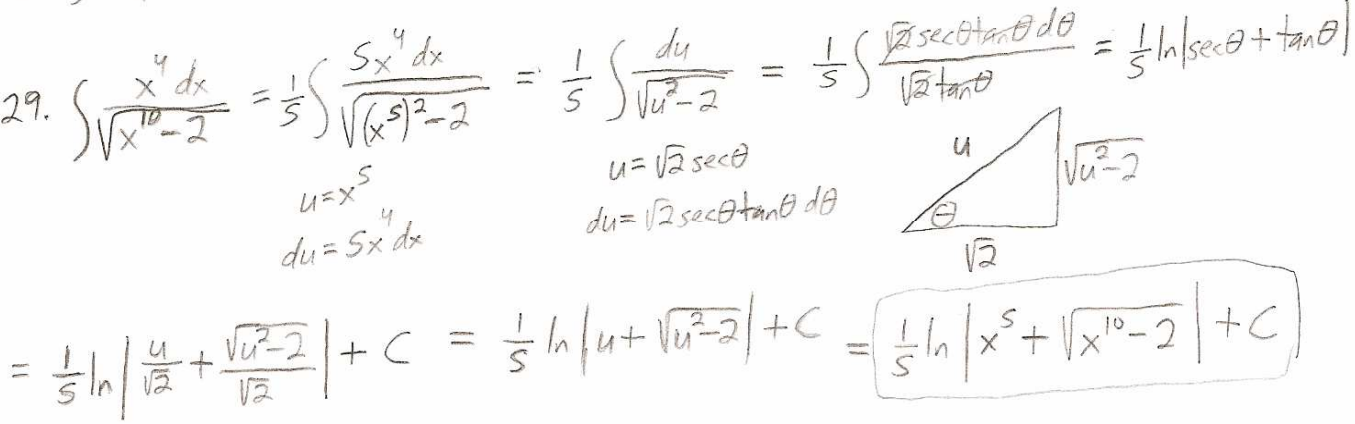 29. ∫ x⁴ dx / √(x¹⁰ − 2) = 1/5 ∫ 5x⁴ dx / √((x⁵)² − 2) = 1/5 ∫ du / √(u² − 2) = 1/5 ∫ √2 secθ tanθ dθ / √2 tanθ = 1/5 ln|secθ + tanθ|
u = x⁵
du = 5x⁴ dx
u = √2 secθ
du = √2 secθ tanθ dθ
u
√(u² − 2)
θ
√2
= 1/5 ln| u/√2 + √(u² − 2)/√2 | + C = 1/5 ln| u + √(u² − 2) | + C = 1/5 ln| x⁵ + √(x¹⁰ − 2) | + C